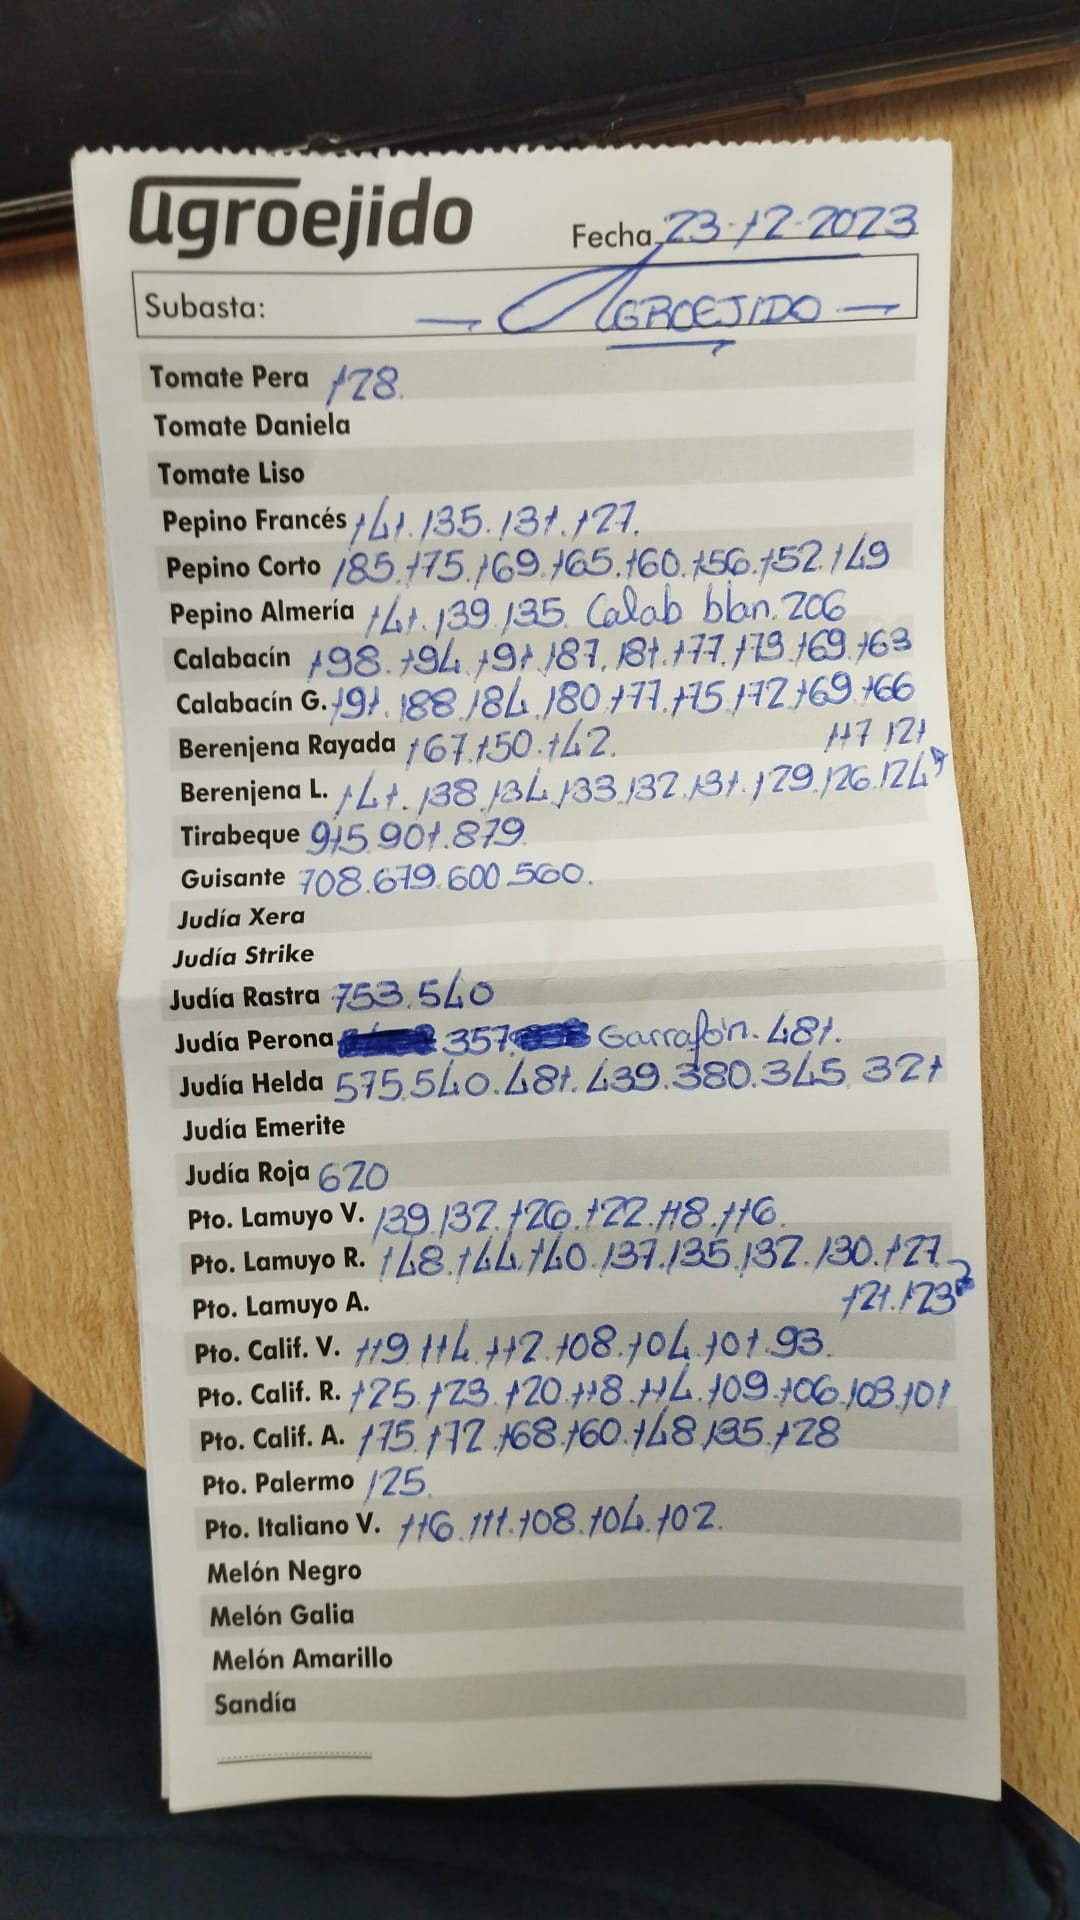 agroejido
Fecha 23-12-2023
Subasta: - AGROEJIDO -
Tomate Pera 128.
Tomate Daniela
Tomate Liso
Pepino Francés 141.135.131.127.
Pepino Corto 185.175.169.165.160.156.152.149
Pepino Almería 141.139.135. Calab blan.206
Calabacín 198.194.191.187.181.177.173.169.163
Calabacín G. 191.188.184.180.177.175.172.169.166
Berenjena Rayada 167.150.142.
117 121
Berenjena L. 141.138.134.133.132.131.129.126.124
Tirabeque 915.901.879.
Guisante 708.679.600.560.
Judía Xera
Judía Strike
Judía Rastra 753.540
Judía Perona 357. Garrafón. 481.
Judía Helda 575.540.481.439.380.345.321
Judía Emerite
Judía Roja 620
Pto. Lamuyo V. 139.132.126.122.118.116.
Pto. Lamuyo R. 148.144.140.137.135.132.130.127
Pto. Lamuyo A. 121.123
Pto. Calif. V. 119.114.112.108.104.101.93.
Pto. Calif. R. 125.123.120.118.114.109.106.103.101
Pto. Calif. A. 175.172.168.160.148.135.128
Pto. Palermo 125.
Pto. Italiano V. 116.111.108.104.102.
Melón Negro
Melón Galia
Melón Amarillo
Sandía